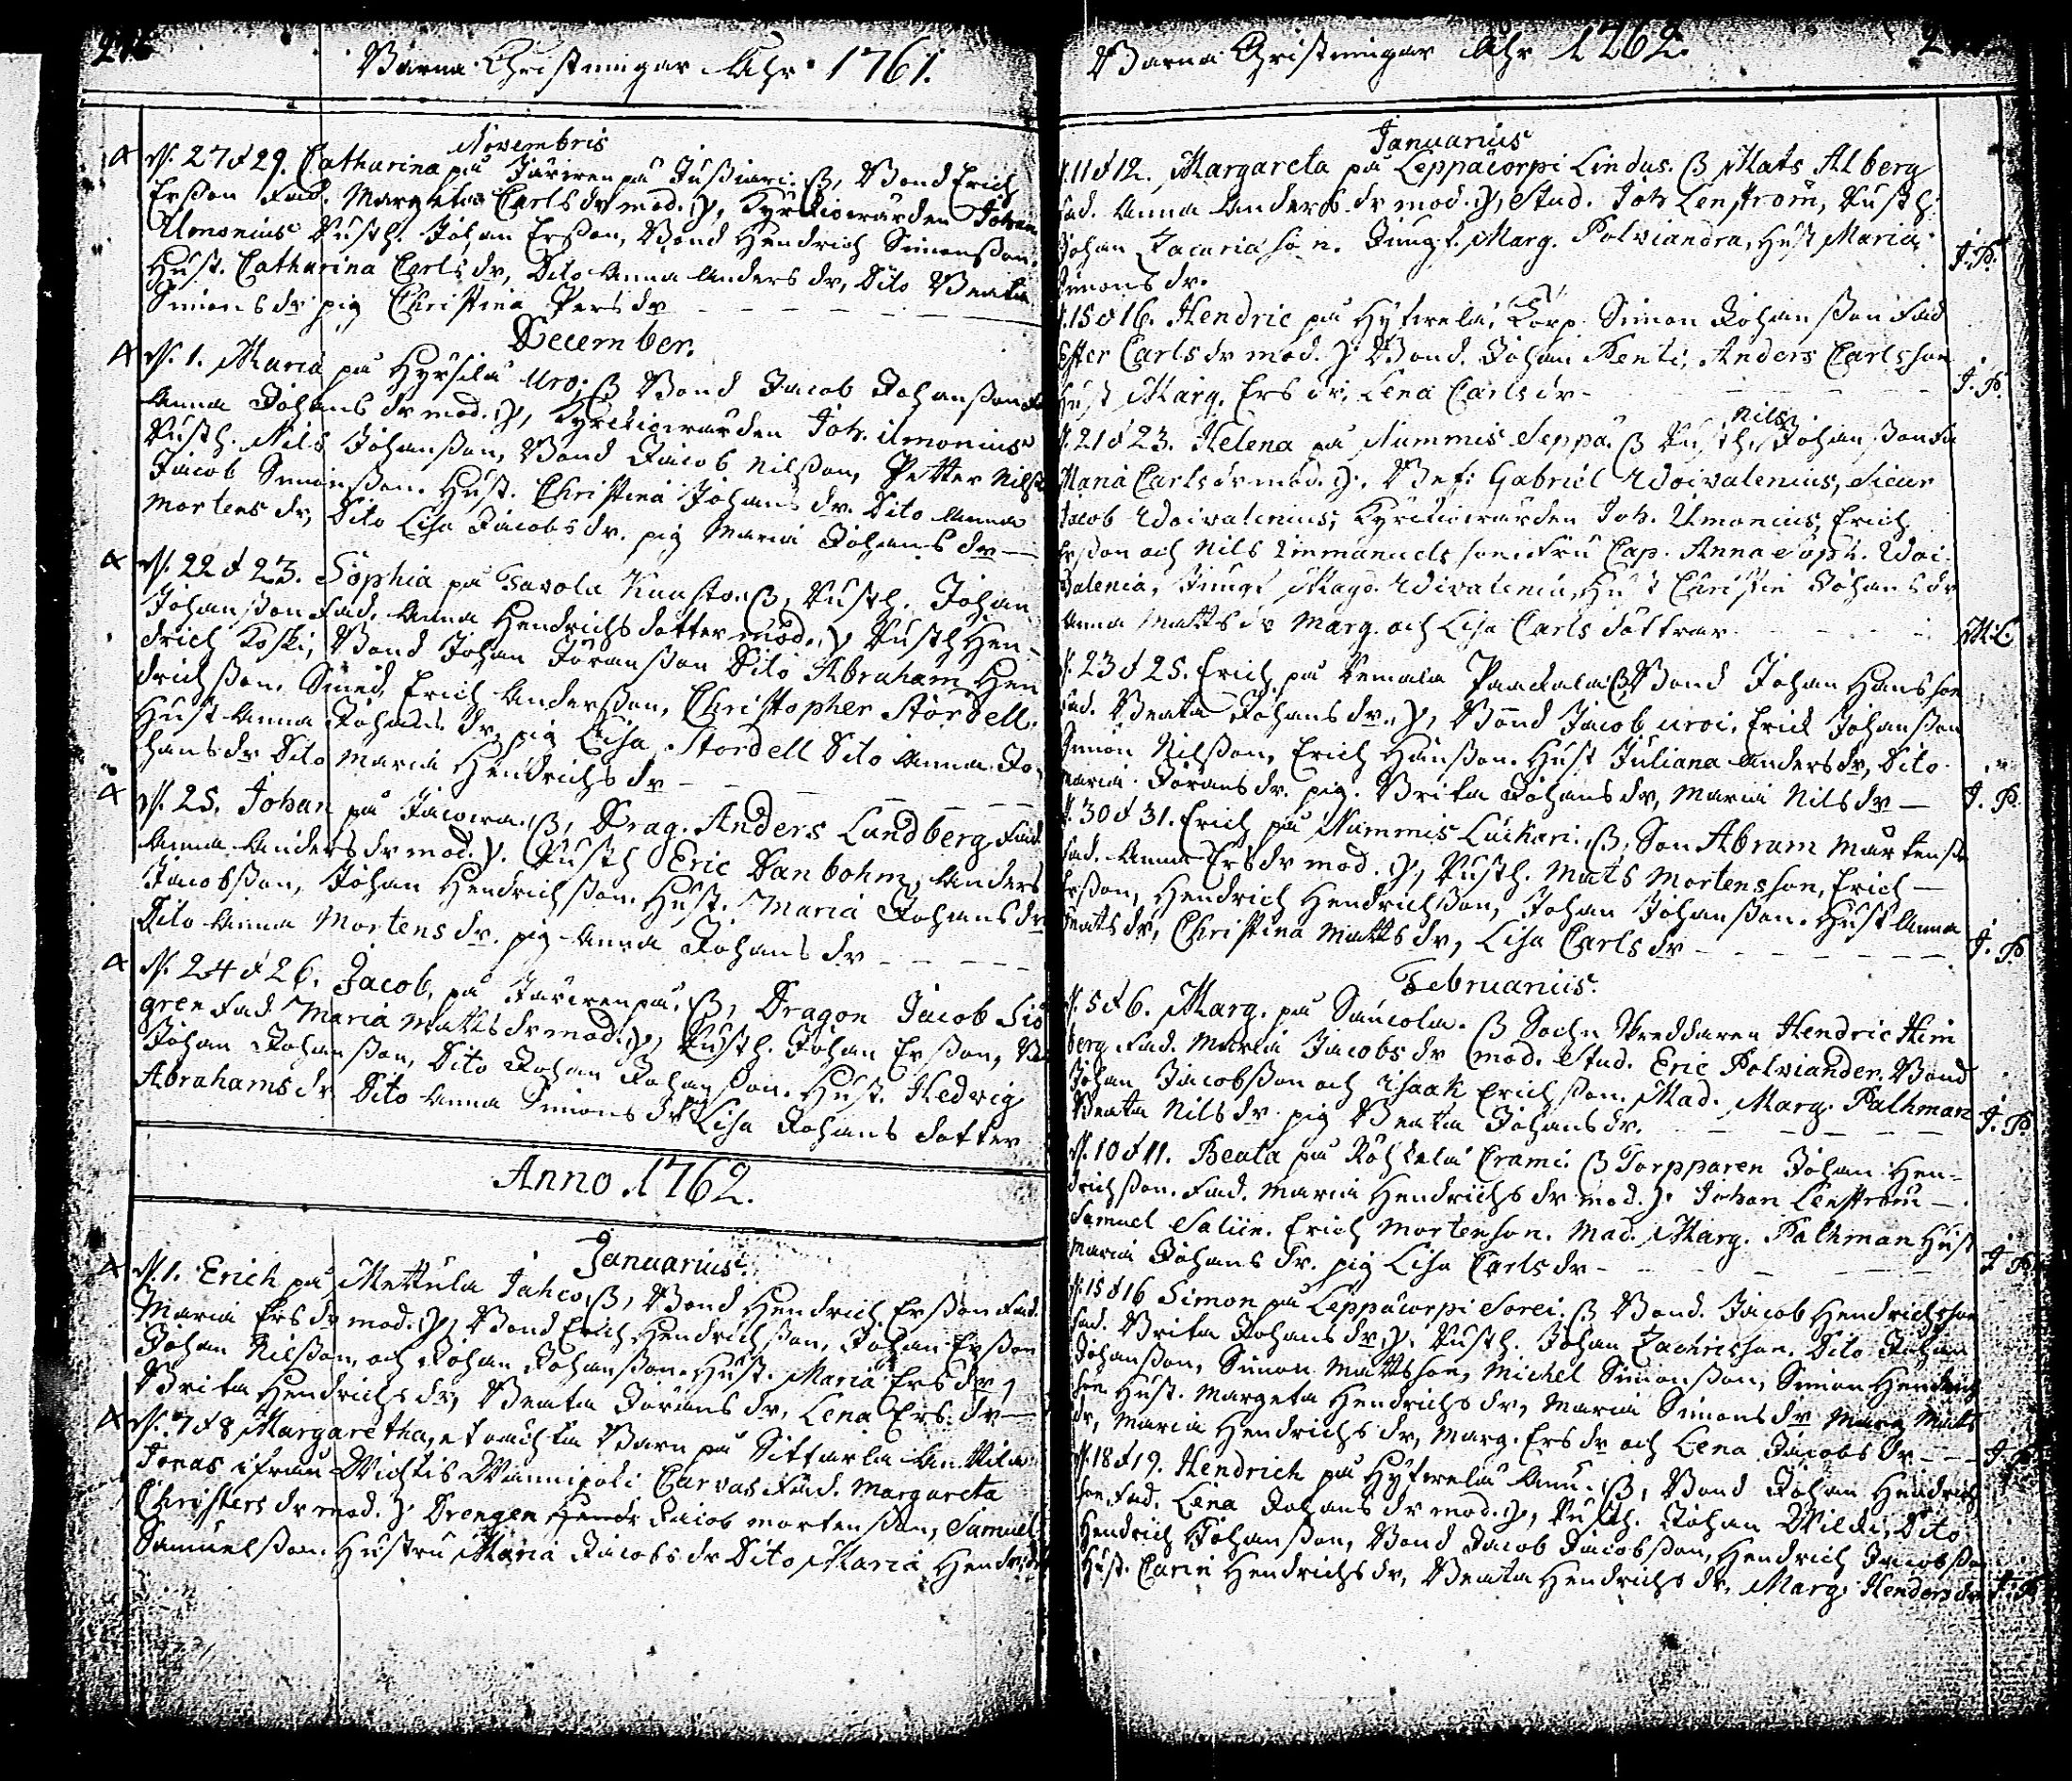 Barna Christningar Åhr 1761.
Novembris
N. 27 d 29. Catharina på Järirenpä Jussiari. B, Bond Erich
Erßon Fad. Margeta Carls dr mod. Y, Kyrckiowärden Johan
Ilmonius Rusth. Johan Erßon, Bond Hendrich Simonßon
Hust. Catharina Carls dr, Dito Anna Anders dr, Dito Beata
Simons dr pig Christina Pers dr
December.
N. 1. Maria på Hyrsilä Uro. B Bond Jacob Johanßon
Anna Johans dr mod. Y, Kyrckiowärden Joh. Ilmonius
Rusth. Nils Johanßon, Bond Jacob Nilßon, Petter Nilß
Jacob Simonßon. Hust. Christina Johans dr. Dito Anna
Mortens dr, Dito Lisa Jacobs dr. pig Maria Johans dr
N. 22 d 23. Sophia på Tavola B, Rusth. Johan
Johanßon Fad. Anna Hendrichs dotter mod. Y Rusth Hen-
drich Koski, Bond Johan Jöranßon Dito Abraham Hen
drichßon. Smed Erich Anderßon, Christopher Stordell.
Hust Anna Johans dr, pig Lisa Stordell Dito Anna Jo-
hans dr Dito Maria Hendrichs dr
N. 25. Johan på B, Drag. Anders Lundberg Fad
Anna Anders dr mod. Y. Rusth Eric Danbohm, Anders
Jacobßon, Johan Hendrichßon. Hust. Maria Johans dr
Dito Anna Mortens dr. pig Anna Johans dr
N. 24 d 26. Jacob, på Järirenpä. B, Dragon Jacob Siö
gren Fad Maria Matts dr mod. Y, Rusth. Johan Erßon, B
Johan Johanßon, Dito Johan Johanßon. Hust. Hedvig
Abrahams dr Dito Anna Simons dr Lisa Johans dotter
Anno 1762.
Januarius.
N. 1. Erich på Mettula Jahco, B, Bond Hendrich Erßon Fad.
Maria Ers dr mod. Y, Bond Erich Hendrichßon, Johan Erßon
Johan Nilßon, och Johan Johanßon. Hust. Maria Ers dr,
Brita Hendrichs dr, Beata Jörans dr, Lena Ers dr
N. 7 d 8 Margaretha, et oächta Barn på Sittarla Anttila
Jonas ifrån Wichtis Wannigoki Carvas Fad. Margareta
Christers dr mod. Y Drengen Jacob Mortenßon, Samuel
Samuelßon. Hustru Maria Jacobs dr Dito Maria Hendrichs
Barna Christningar Åhr 1762.
Januarius
N. 11 d 12. Margareta på Leppäcorpi Lindus. B Mats Alberg
Fad. Anna Anders dr mod. Y, Stud. Joh Lenström, Rusth.
Johan Zacariason. Jungf. Marg. Polviandra, Hust Maria
Simons dr. J. P.
N. 15 d 16. Hendric på Hytwelä, Korp. Simon Johanßon Fad
Ester Carls dr mod. Y Bond. Johan Renti, Anders Carlsson
Hust Marg. Ers dr, Lena Carls dr J. P.
N. 21 d 23. Helena på Nummis Seppä. B Rusth. Nils Johanßon Fa
Maria Carls dr mod. Y. Bef. Gabriel Adoivalenius,
Jacob Adoivalenius, Kyrckiowärden Joh. Ilmonius, Erich
Erßon och Nils Emmanuelsson. Fru Cap. Anna Soph. Adoi-
valenia, Jungf Magd. Adoivalenia, Hust Christin Johans dr
Anna Matts dr Marg. och Lisa Carls döttrar M. C.
N. 23 d 25. Erich på Remala Paackala. B Bond Johan Hansson
Fad. Beata Johans dr. Y, Bond Jacob Uroi, Erich Johanßon
Simon Nilßon, Erich Hanßon. Hust Juliana Anders dr, Dito
Maria Jörans dr. pig. Brita Johans dr, Maria Nils dr J. P.
N. 30 d 31. Erich på Nummis Luckari. B, Son Abram Mårtensß
Fad. Anna Ers dr mod. Y, Rusth. Mats Mortensson, Erich
Erßon, Hendrich Hendrichßon, Johan Johanßon. Hust Anna
Mats dr, Christina Matts dr, Lisa Carls dr J. P.
Februarius.
N. 5 d 6. Marg. på Saucola. B Sockn Skreddaren Hendric Him
berg Fad. Maria Jacobs dr mod. Stud. Eric Polviander. Bond
Johan Jacobßon och Isaak Erichßon. Mad. Marg. Palhman
Beata Nils dr pig Beata Johans dr. J. P.
N. 10 d 11. Beata på Röhkelä Crami. B Torpparen Johan Hen-
drichßon. Fad. Maria Hendrichs dr mod. Y. Johan Lenström
Samuel Salin. Erich Mortenson. Mad. Marg. Palhman Hust
Maria Johans dr. pig Lisa Carls dr J. P.
N. 15 d 16 Simon på Leppäcorpi Sorei. B Bond. Jacob Hendrichsson
Fad. Brita Johans dr, Y. Rusth. Johan Zachrisson. Dito Johan
Johanßon, Simon Mattsson, Michel Simonßon, Simon Hendrich
son Hust. Margeta Hendrichs dr, Maria Simons dr Marg Mats
dr, Maria Hendrichs dr, Marg. Ers dr och Lena Jacobs dr J. P.
N. 18 d 19. Hendrich på Hytwelä Anu. B, Bond Johan Hendrich
son Fad. Lena Johans dr mod. Y, Rusth. Johan Wilcki, Dito
Hendrich Johanßon, Bond Jacob Jacobßon, Hendrich Jacobßon
Hust. Carin Hendrichs dr, Beata Hendrichs dr, Marg. Henders dr J. P.